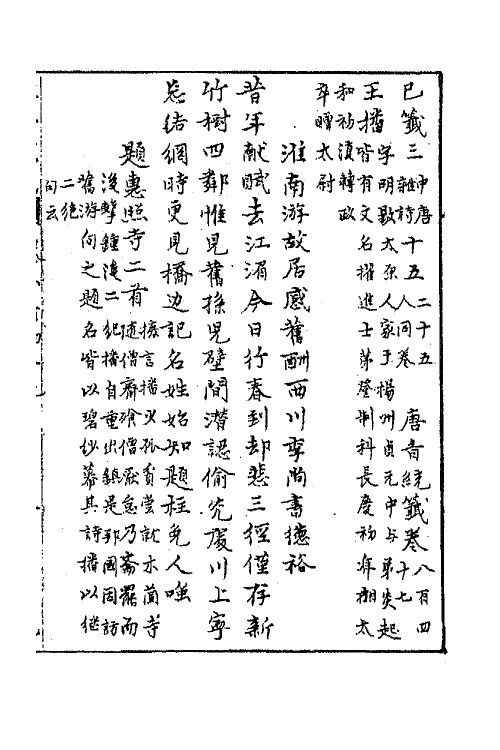 已籤三 中唐雜詩十五 二十五人同卷 唐音統籤卷八百四十七
王播 字明敭太原人家于楊州貞元中与弟炎起
皆有文名擢進士第登制科長慶初拜相太
和初復輔政
卒贈太尉
淮南游故居感舊酬西川李尚書德裕
昔年献賦去江湄今日行春到却悲三徑僅存新
竹樹四鄰惟見舊孫児壁間潜認偷光處川上寧
忘結網時更見橋边記名姓始知題柱免人嗤
題惠照寺二首 摭言播少孤貧嘗就木蘭寺
随僧齋飡僧厭怠乃齋罷而
後擊鍾後二紀播自重出鎮是邦因訪
舊游向之題名皆以碧紗幕其詩播以継
二絶
句云